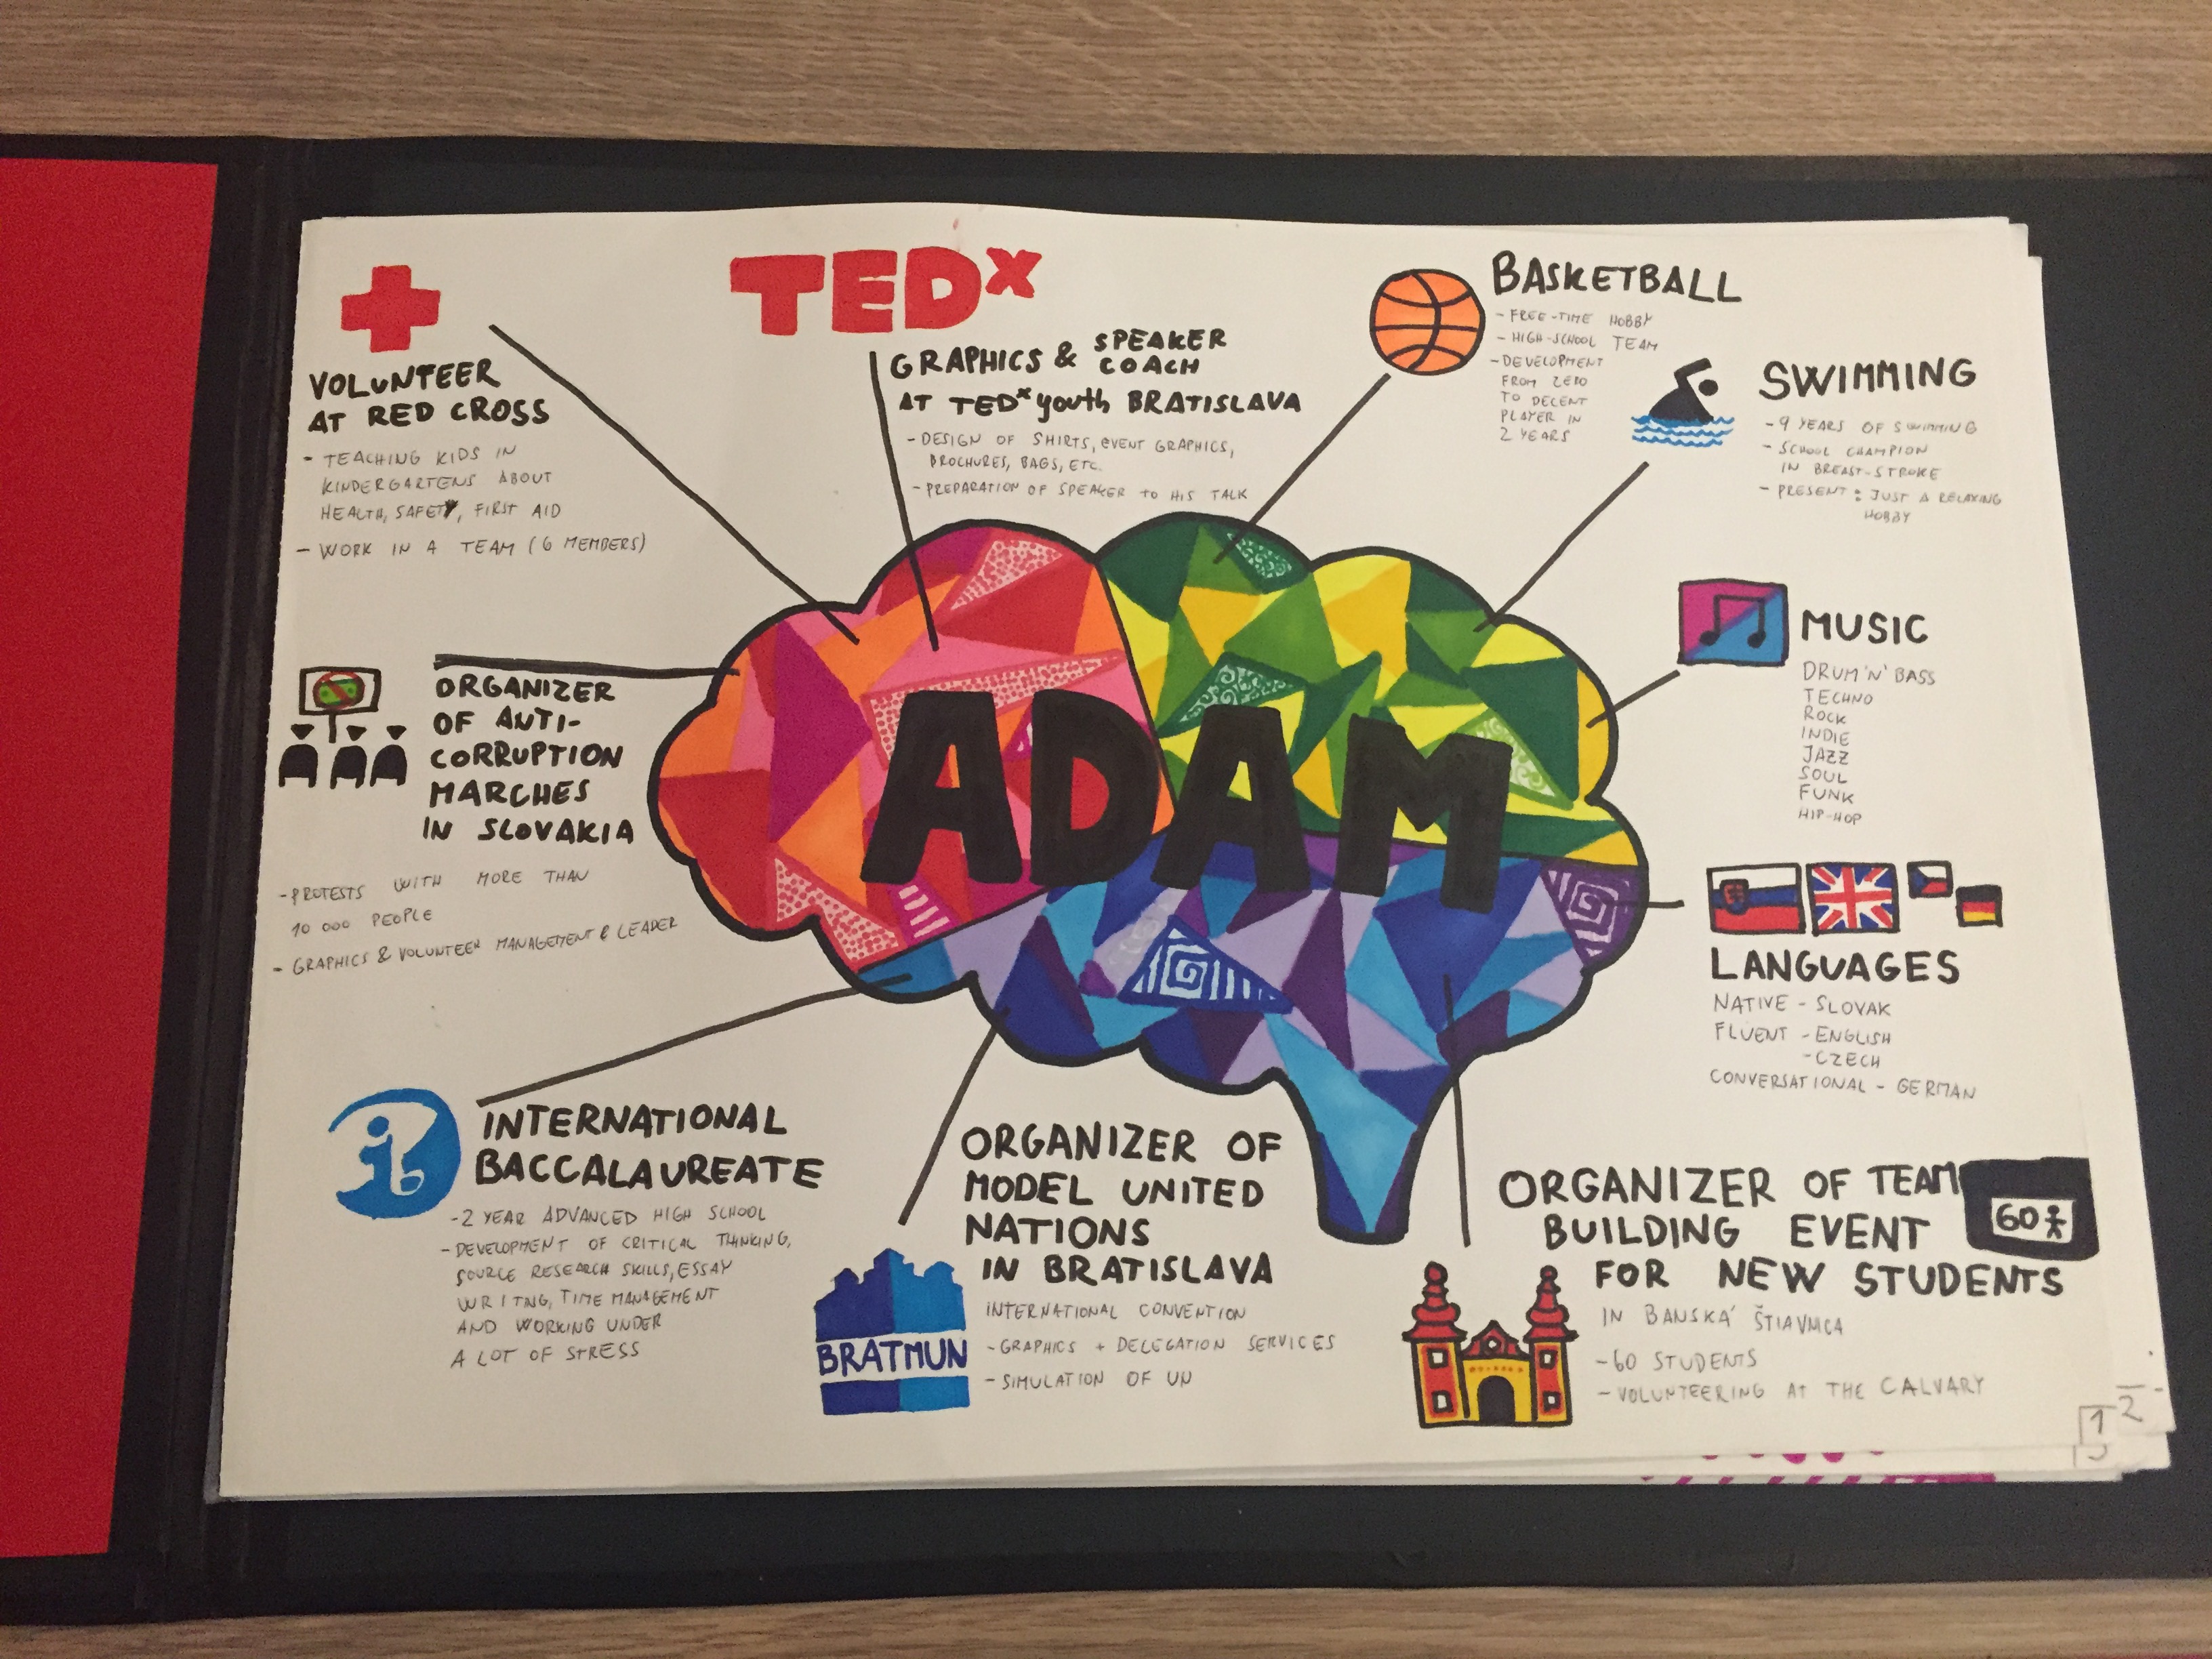 VOLUNTEER
AT RED CROSS
- TEACHING KIDS IN
KINDERGARTENS ABOUT
HEALTH, SAFETY, FIRST AID
- WORK IN A TEAM (6 MEMBERS)
TEDx
GRAPHICS & SPEAKER COACH
AT TEDx youth BRATISLAVA
- DESIGN OF SHIRTS, EVENT GRAPHICS,
BROCHURES, BAGS, ETC.
- PREPARATION OF SPEAKER TO HIS TALK
BASKETBALL
- FREE-TIME HOBBY
- HIGH-SCHOOL TEAM
- DEVELOPMENT
FROM ZERO
TO DECENT
PLAYER IN
2 YEARS
SWIMMING
- 9 YEARS OF SWIMMING
- SCHOOL CHAMPION
IN BREAST-STROKE
- PRESENT: JUST A RELAXING
HOBBY
ORGANIZER
OF ANTI-
CORRUPTION
MARCHES
IN SLOVAKIA
- PROTESTS WITH MORE THAN
10 000 PEOPLE
- GRAPHICS & VOLUNTEER MANAGEMENT & LEADER
ADAM
MUSIC
DRUM'N'BASS
TECHNO
ROCK
INDIE
JAZZ
SOUL
FUNK
HIP-HOP
LANGUAGES
NATIVE - SLOVAK
FLUENT - ENGLISH
- CZECH
CONVERSATIONAL - GERMAN
ib
INTERNATIONAL
BACCALAUREATE
- 2 YEAR ADVANCED HIGH SCHOOL
- DEVELOPMENT OF CRITICAL THINKING,
SOURCE RESEARCH SKILLS, ESSAY
WRITNG, TIME MANAGEMENT
AND WORKING UNDER
A LOT OF STRESS
BRATMUN
ORGANIZER OF
MODEL UNITED
NATIONS
IN BRATISLAVA
INTERNATIONAL CONVENTION
- GRAPHICS + DELEGATION SERVICES
- SIMULATION OF UN
ORGANIZER OF TEAM
BUILDING EVENT
FOR NEW STUDENTS
60
IN BANSKÁ ŠTIAVNICA
- 60 STUDENTS
- VOLUNTEERING AT THE CALVARY
1
2